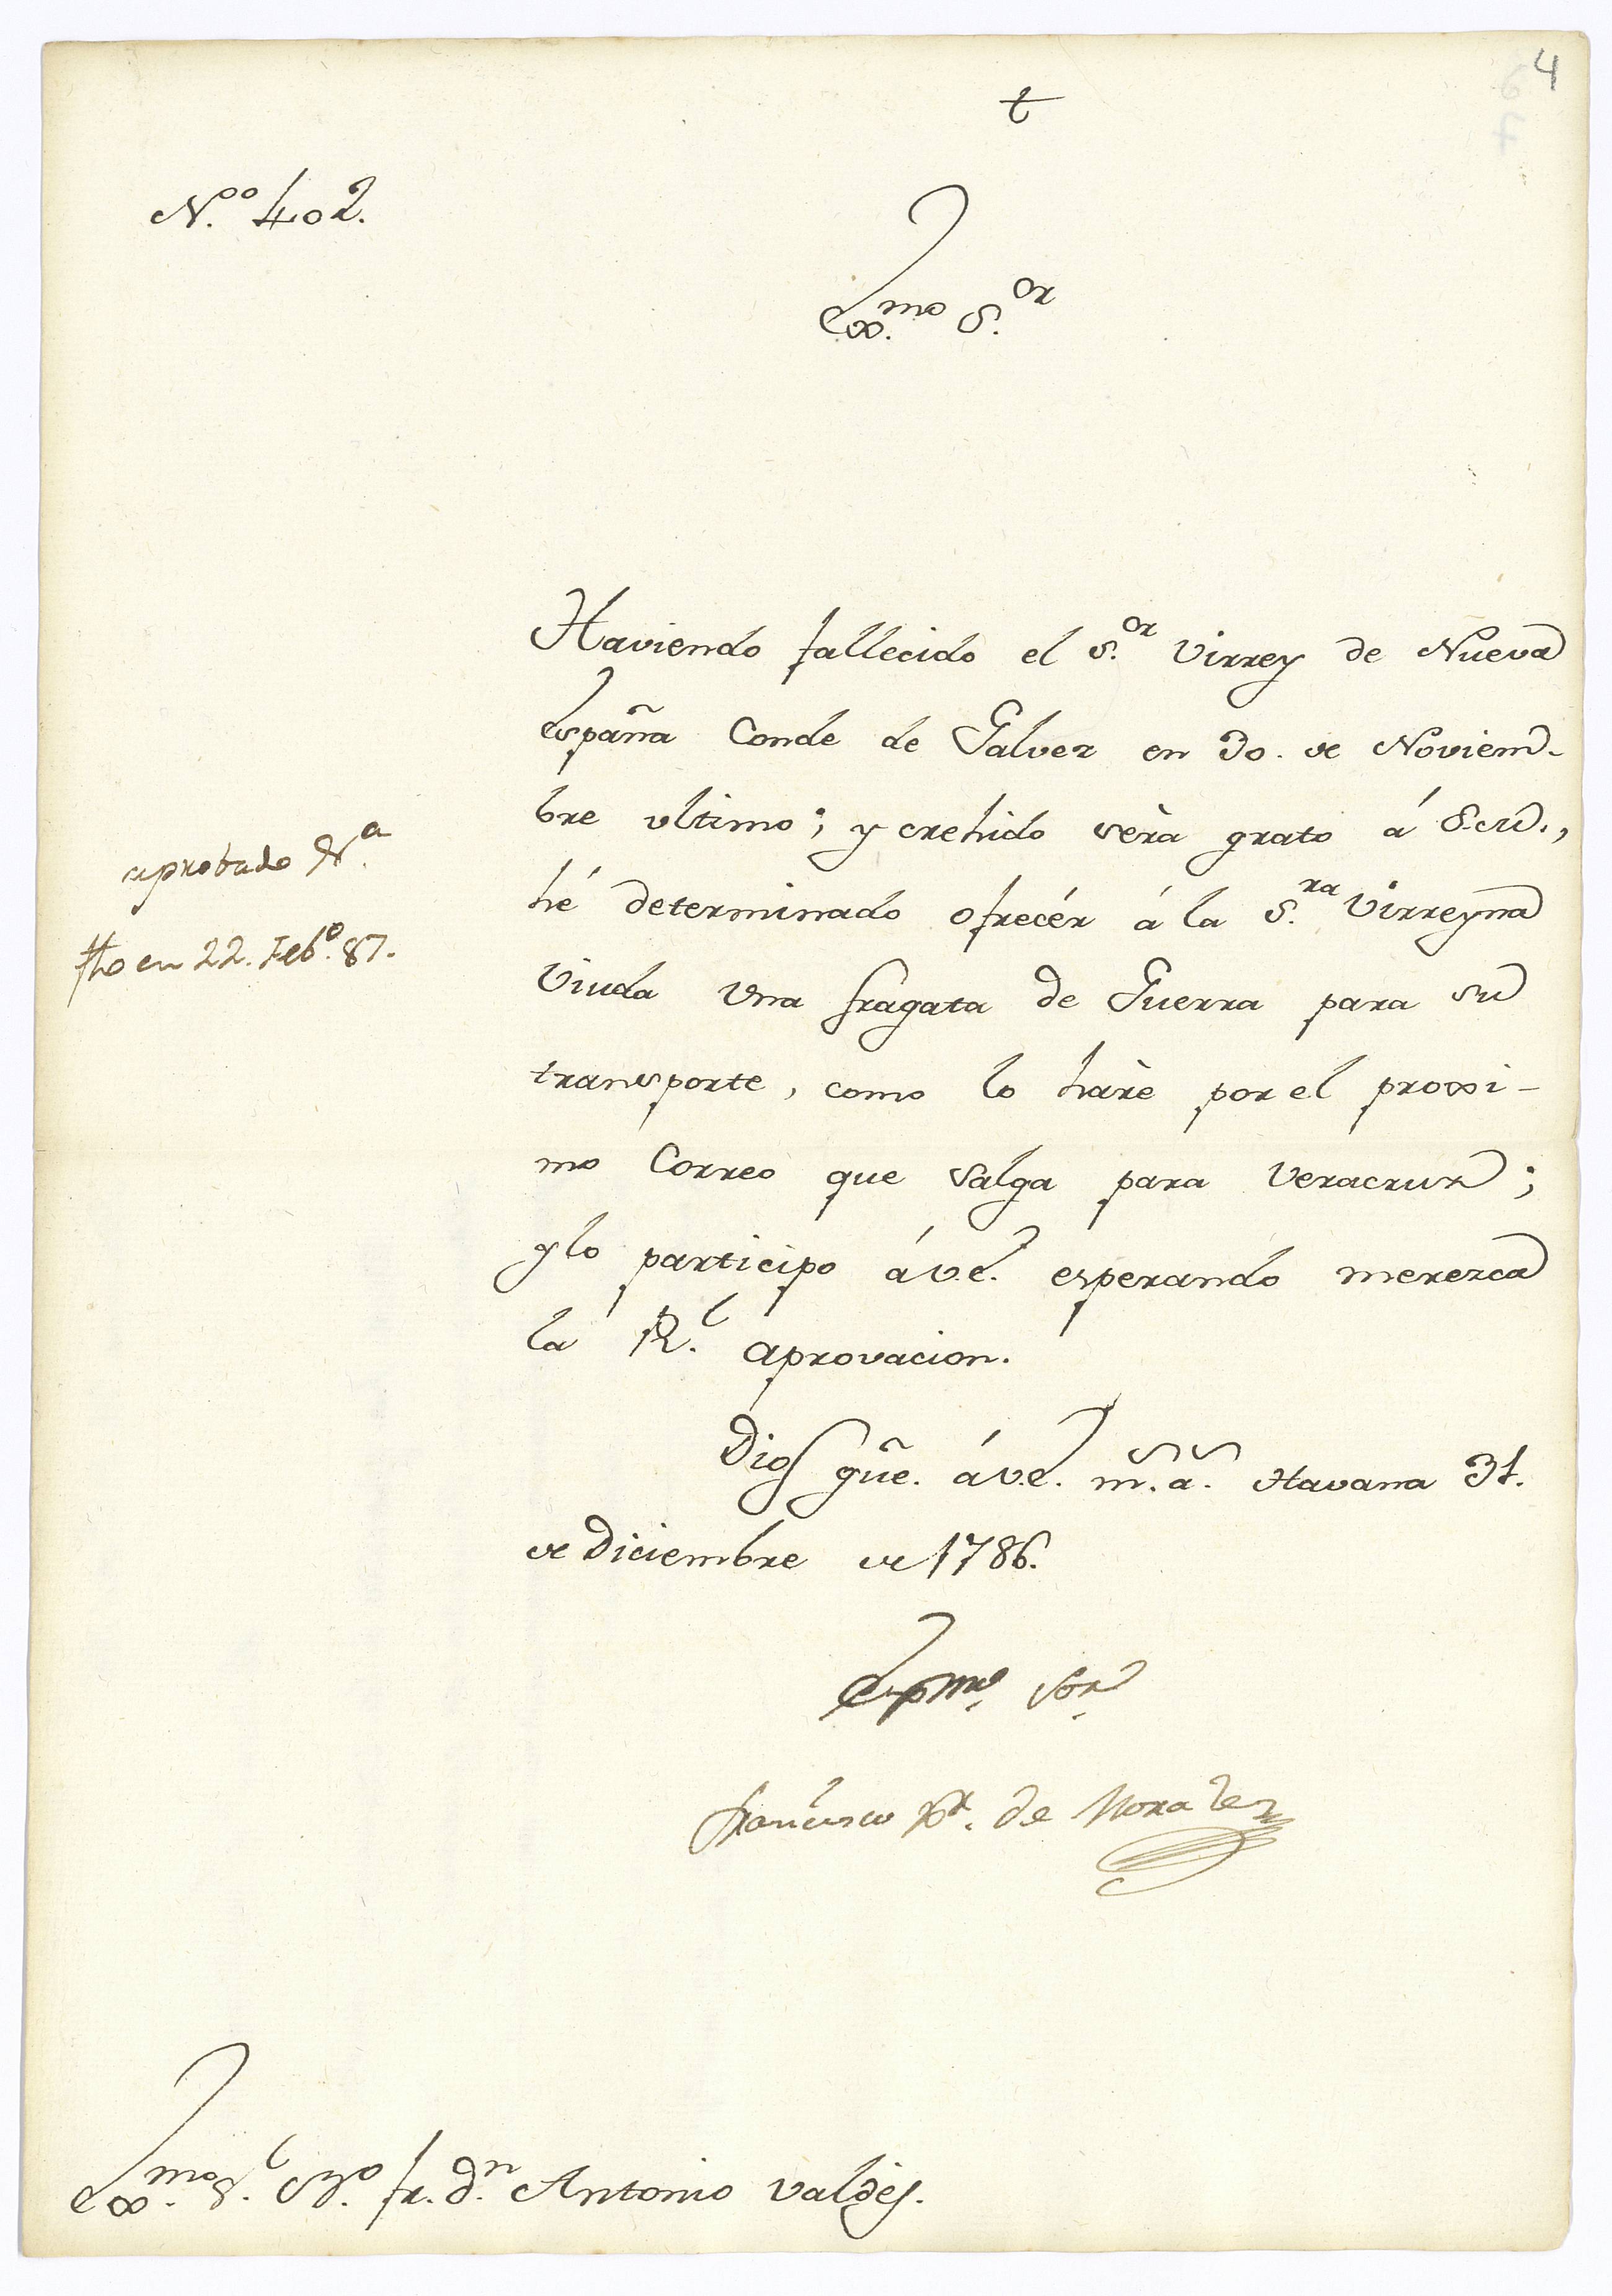 4
t
N.oo 402.
Exmo. S.or
Haviendo fallecido el S.or Virrey de Nueva
España Conde de Galvez en 30. de Noviem-
bre ultimo; y crehido serà grato á S.M.,
hé determinado ofrecér á la S.ra Virreyna
Viuda Una fragata de Guerra para su
transporte, como lo harè por el proxi-
mo Correo que salga para Veracruz;
y lo participo á V.E. esperando merezca
la R.l aprovacion.
aprobado
fho en 22. Feb.o 87.
Dios gũe. á V.E. m.s a.s Havana 31.
de Diciembre de 1786.
Exmo. Sor.
Francisco Xr. de Morales
Exmo. S. B.o fr. d.n Antonio Valdés.